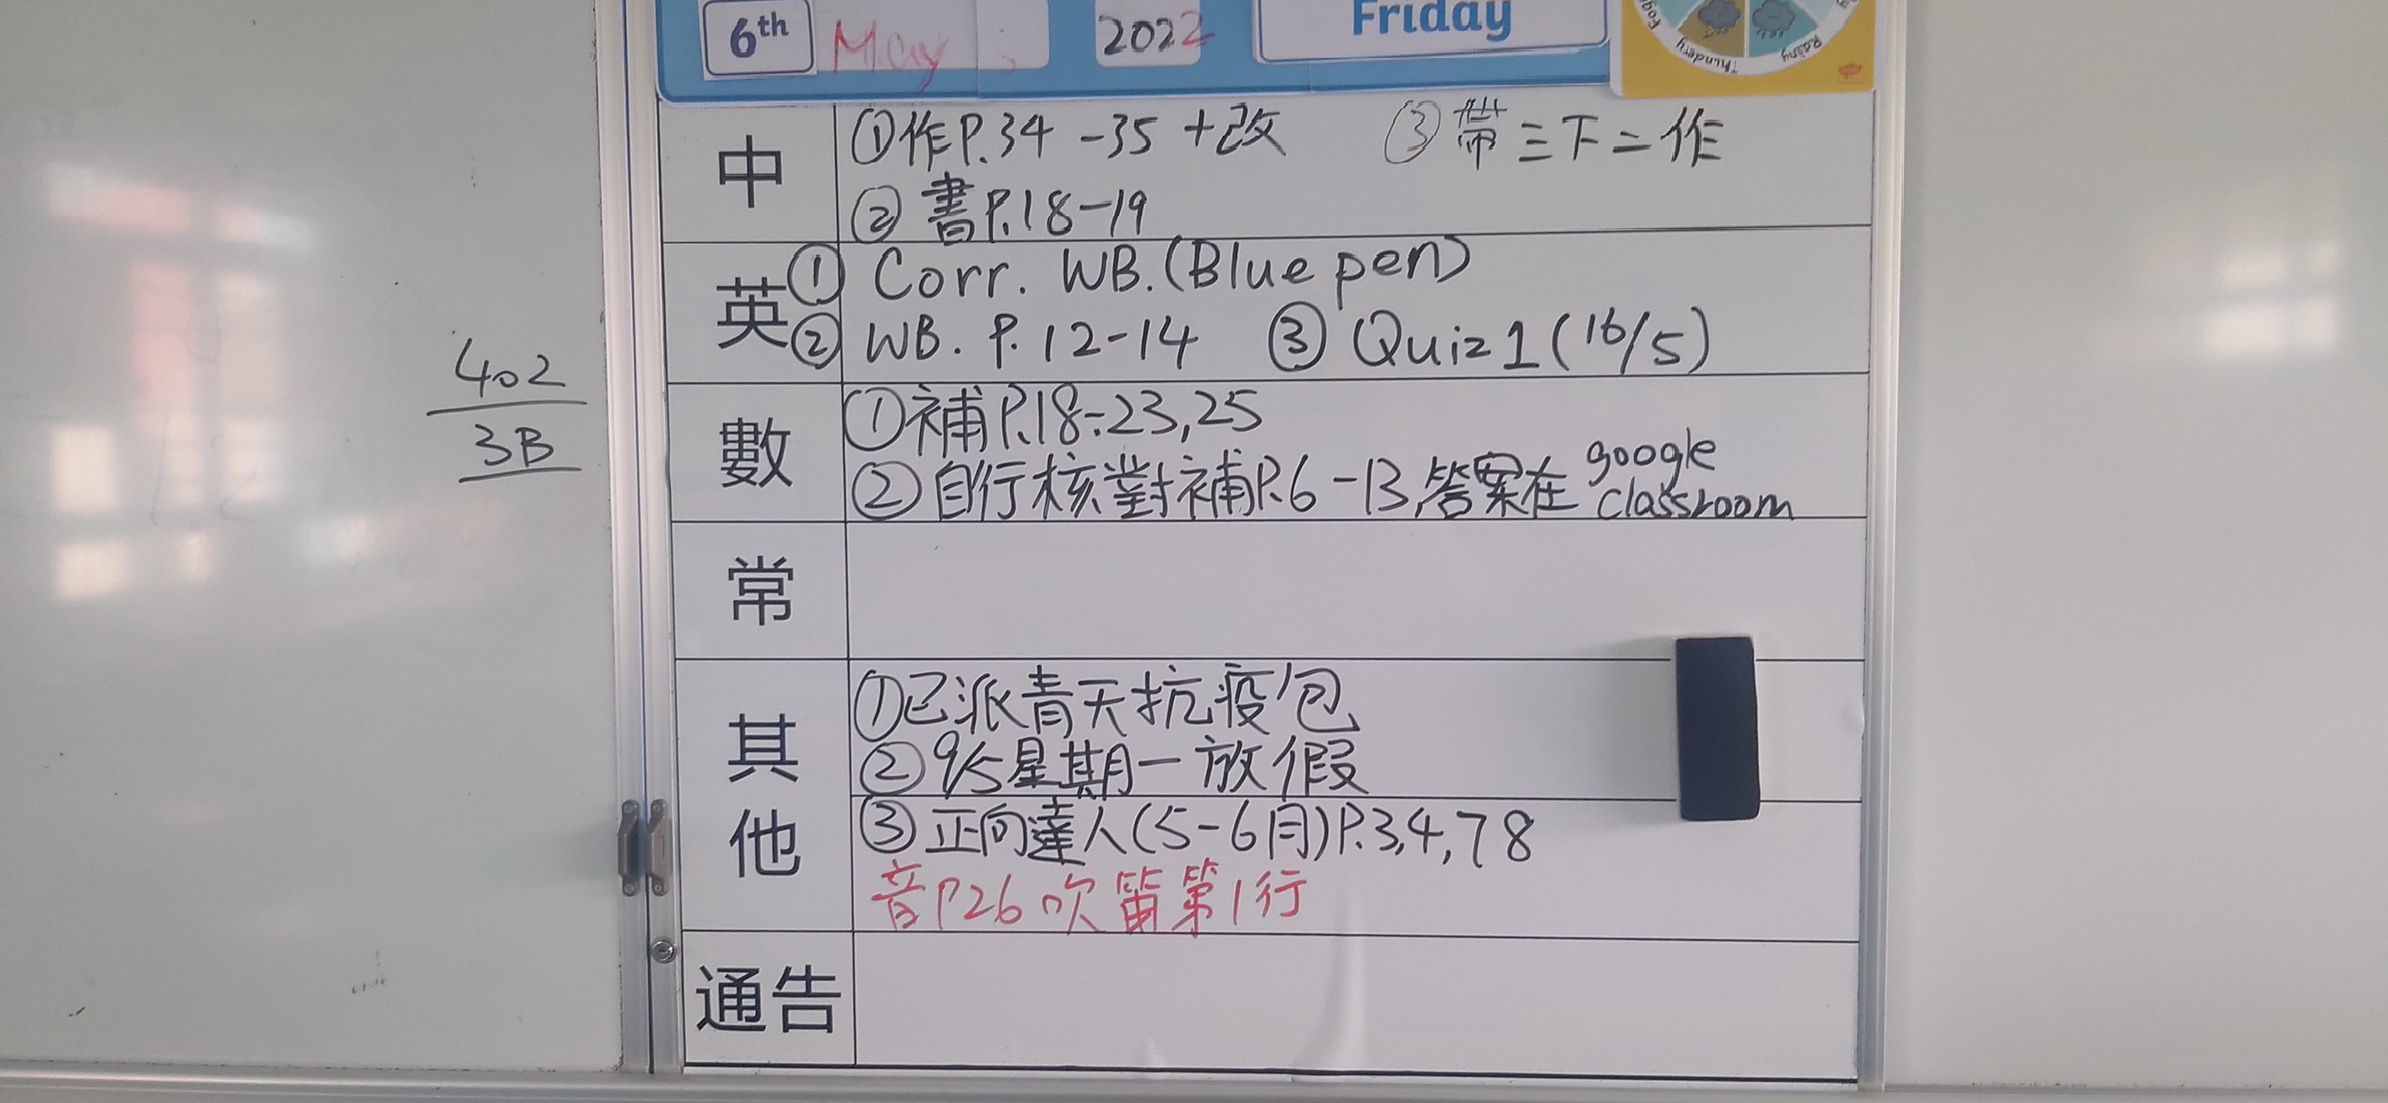 6th May, 2022 Friday
Foggy Thundery Rainy
中 ①作P.34-35+改 ③帶三下二作
②書P.18-19
英 ① Corr. WB.(Blue pen)
② WB. P.12-14 ③ Quiz 1 (16/5)
數 ①補P.18-23,25
②自行核對補P.6-13,答案在 google classroom
常
其他 ①已派青天抗疫包
②9/5星期一放假
③正向達人(5-6月)P.3,4,7 8
音P26吹笛第1行
通告
402
3B